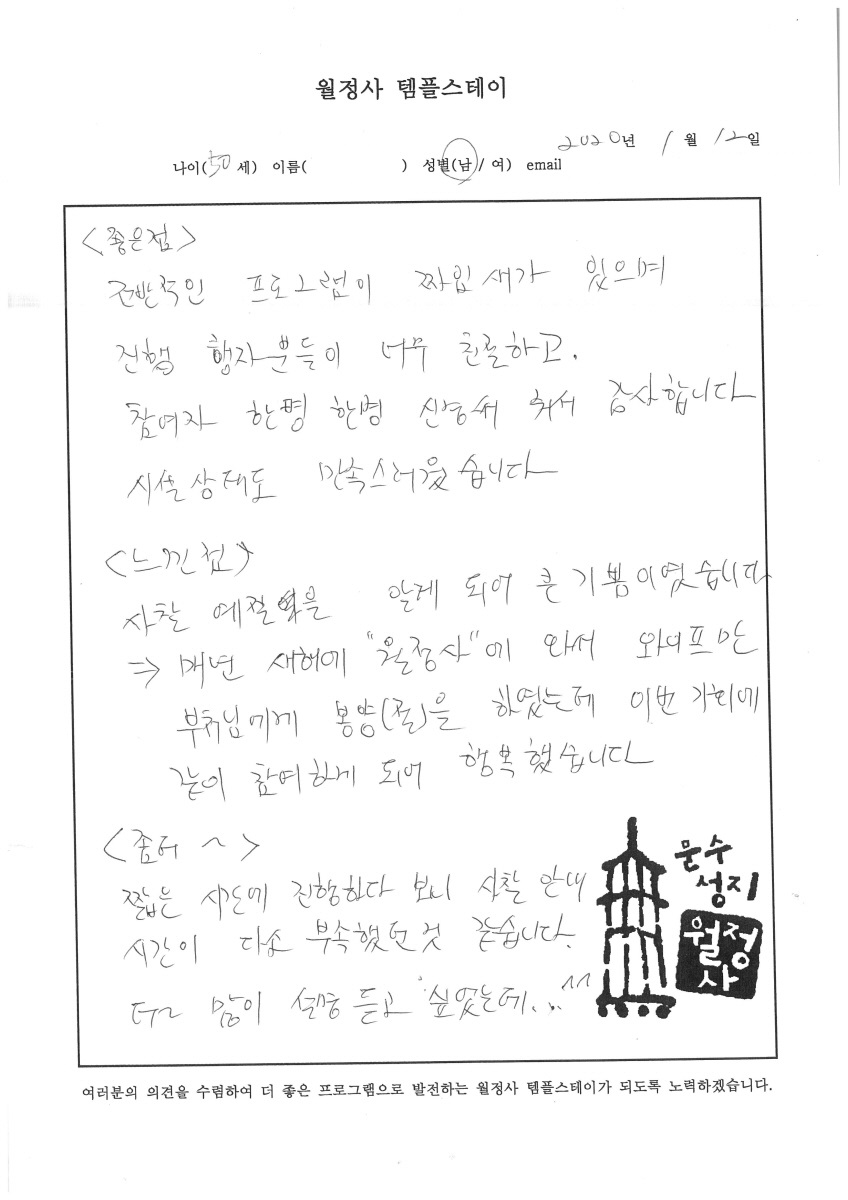 월정사 템플스테이
2020년 1월 12일
나이(50세) 이름( ) 성별(남/여) email
<좋은점>
전반적인 프로그램이 짜임새가 있으며
진행 행자분들이 너무 친절하고.
참여자 한명 한명 신경써 줘서 감사합니다
시설상태도 만족스러웠습니다
<느낀점>
사찰 예절을 알게 되어 큰 기쁨이였습니다
⇒ 매년 새해에 "월정사"에 와서 와이프만
부처님에게 봉양(절)을 하였는데 이번 기회에
같이 참여하게 되어 행복했습니다
<좀더 ~>
짧은 시간에 진행하다 보니 사찰 안내
시간이 다소 부족했던것 같습니다.
더~ 많이 설명 듣고 싶었는데... ^^
문수
성지
월정
사
여러분의 의견을 수렴하여 더 좋은 프로그램으로 발전하는 월정사 템플스테이가 되도록 노력하겠습니다.